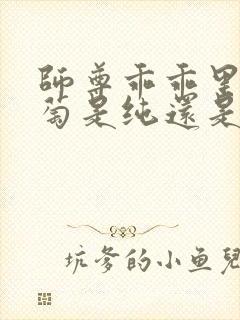 師尊乖乖里
萄是純還是
坑爹的小鱼兒